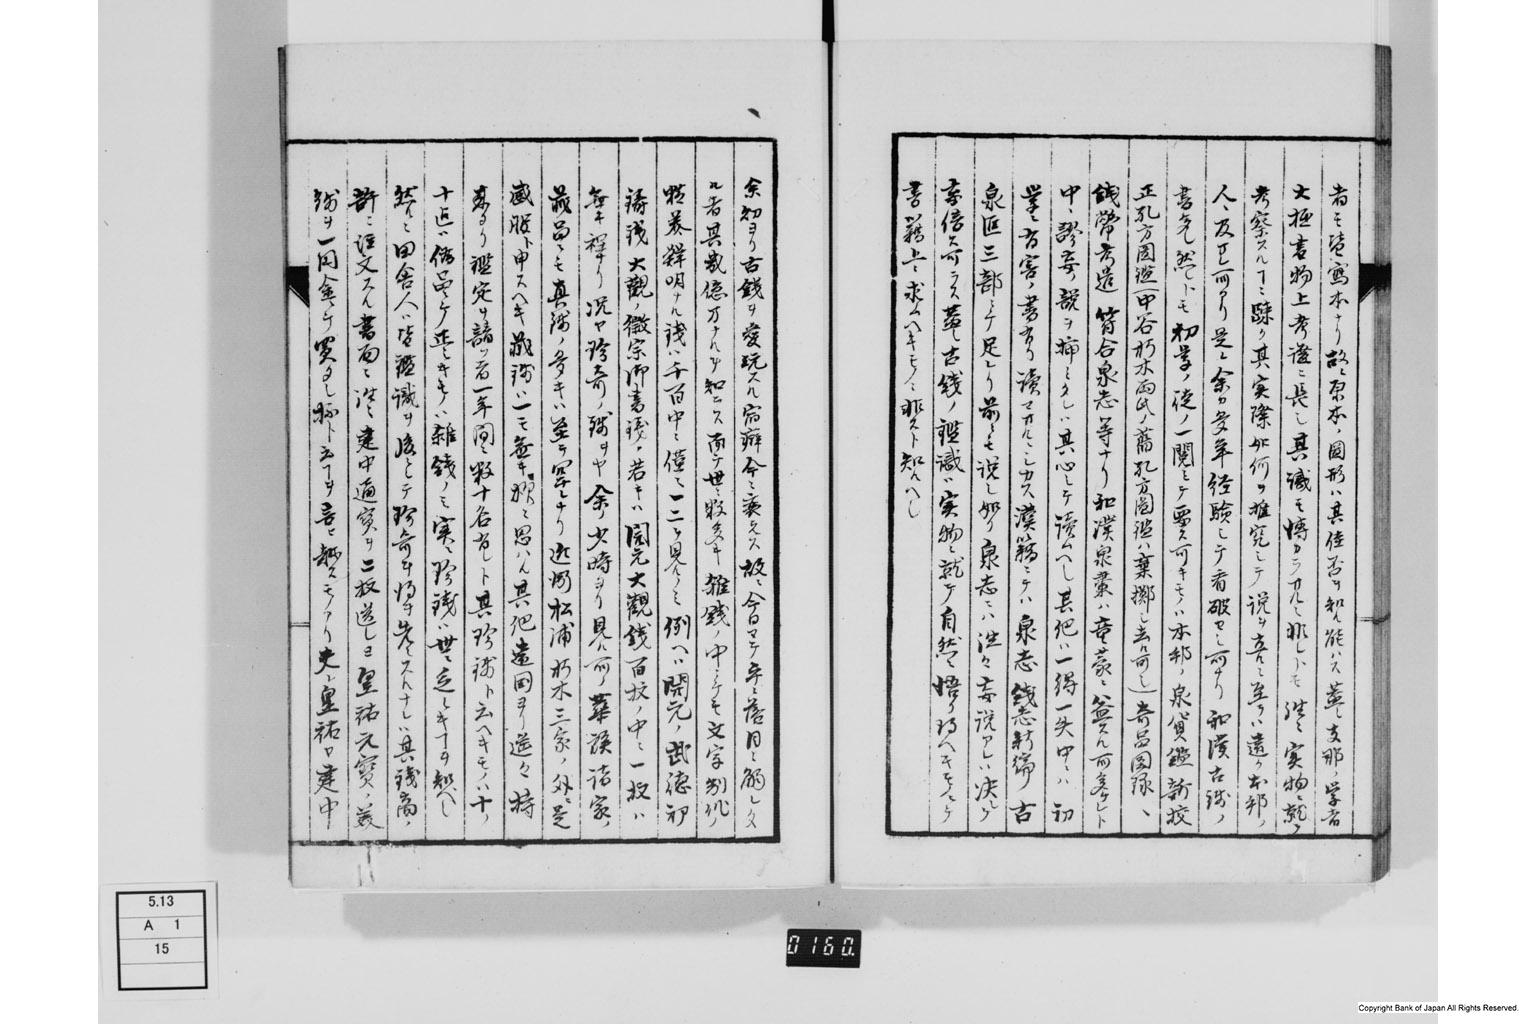 者モ皆寫本ナリ故ニ原本ノ圖形ハ其佳否ヲ知ル能ハス蓋シ支那ノ学者
大極書物上考證ニ長シ其識モ博カラサルニ非レトモ 洪ニ実物ニ就テ
考察スルヿニ疎ク其実際如何ヲ推究シテ説ヲ立ルニ至テハ遠ク本邦ノ
人ニ及ハサル所アリ是レ余カ多年経驗シテ看破セシ所ナリ 和漢古錢ノ
書尤然トモ初学ノ徒ノ一閲シテ要ス可キモノハ本邦ノ泉貨鑑新校
正孔方圖鑑(中谷朽木両氏ノ舊孔方圖鑑ハ棄擲シ去ルヘシ)奇品圖録、
錢幣考遺 符合泉志等ナリ和漢泉彙ハ童蒙ニ益スル所多ケレト
中ニ謬妄ノ説ヲ挿ミタレハ其心シテ讀ムヘシ其他ハ一得一失中ニハ初
学ニ有害ノ書有リ讀マサルニシカス漢籍ニテハ泉志錢志新編 古
泉匯三部ニテ足レリ前ニモ説シ如ク泉志ニハ往々妄説アレハ決シテ
妄信ス可ラス蓋シ古錢ノ鑑識ハ実物ニ就テ自然ニ悟リ得ヘキモノニテ
書籍上ニ求ムヘキモノニ非スト知ルヘシ
余初ヨリ古錢ヲ愛玩スル宿癖今ニ衰ヘス故ニ今日マテ手ニ落目ニ觸レタ
ル者其幾億万ナルヤ知ラス而テ世ニ夥多キ雜錢ノ中ニテモ文字制作ノ
精美鮮明ナル錢ハ千百中ニ僅ニ一二ヲ見ルノミ例ヘハ開元ノ武徳初
鋳錢大觀ノ徽宗御書錢ノ若キハ開元大觀錢百枚ノ中ニ一枚ハ
無キ程ナリ況ヤ珍奇ノ錢ヲヤ余ノ少時ヨリ見シ所ノ華族諸家ノ
藏品ニモ真錢ノ多キハ並テ罕レナリ近衛松浦朽木三家ノ外ニ是
感服ト申スヘキ藏錢ハ一モ無キ様ニ思ハル其他遠國ヨリ遥々持
来リ鑑定ヲ請フ者一年間ニ数十名ナレト其珍錢ト云ヘキモノハ十ノ
十迄ハ偽品ニテ正シキモノハ雜錢ノミ実ニ珍錢ハ世ニ乏シキヿヲ知ヘシ
然ルニ田舎人ハ皆鑑識ヲ後ニシテ珍奇ヲ得ルヲ先ニスルナレハ其錢商ノ
許ニ注文スル書面ニ 洪ニ建中通寳ヲ二枚送レヨ皇祐元寳ノ美
錢ヲ一円金ニテ買タシ杯ト云フヿヲ言ヒ越スモノアリ夫レ皇祐ヤ建中
5.13
A 1
15
0160.
Copyright Bank of Japan All Rights Reserved.